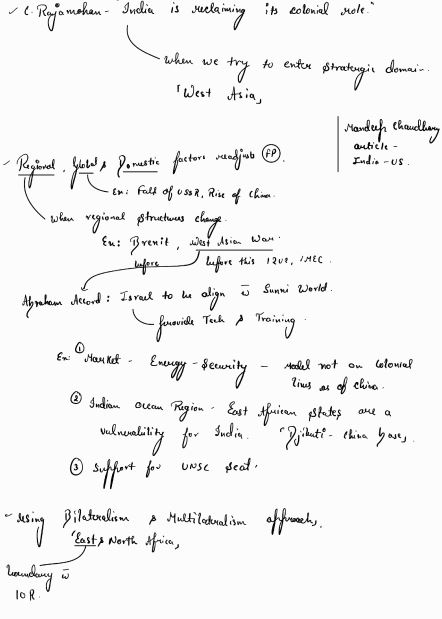 ✓ C. Rajamohan - India is reclaiming its colonial role."
when we try to enter strategic domain.
"West Asia"
Mandeep Chaudhary
article -
India - US.
✓ Regional, Global & Domestic factors readjust FP.
Ex: Fall of USSR, Rise of China.
when regional structures change.
Ex: Brexit, West Asian War.
before
before this I2U2, IMEC.
Abraham Accord: Israel to be align w̄ Sunni World.
provide Tech & Training.
Ex: ① Market - Energy - Security - model not on colonial
lines as of China.
② Indian Ocean Region - East African states are a
vulnerability for India. "Djibuti" - China base,
③ Support for UNSC seat.
✓ using Bilateralism & Multilateralism approach,
"East & North Africa"
boundary w̄
IOR.